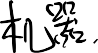 机器.